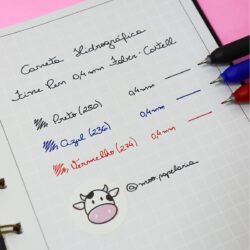 Caneta Hidrográfica
Fine Pen 0,4mm Faber-Castell
Preto (250) 0,4mm
Azul (236) 0,4mm
Vermelho (234) 0,4mm
@moo.papelaria